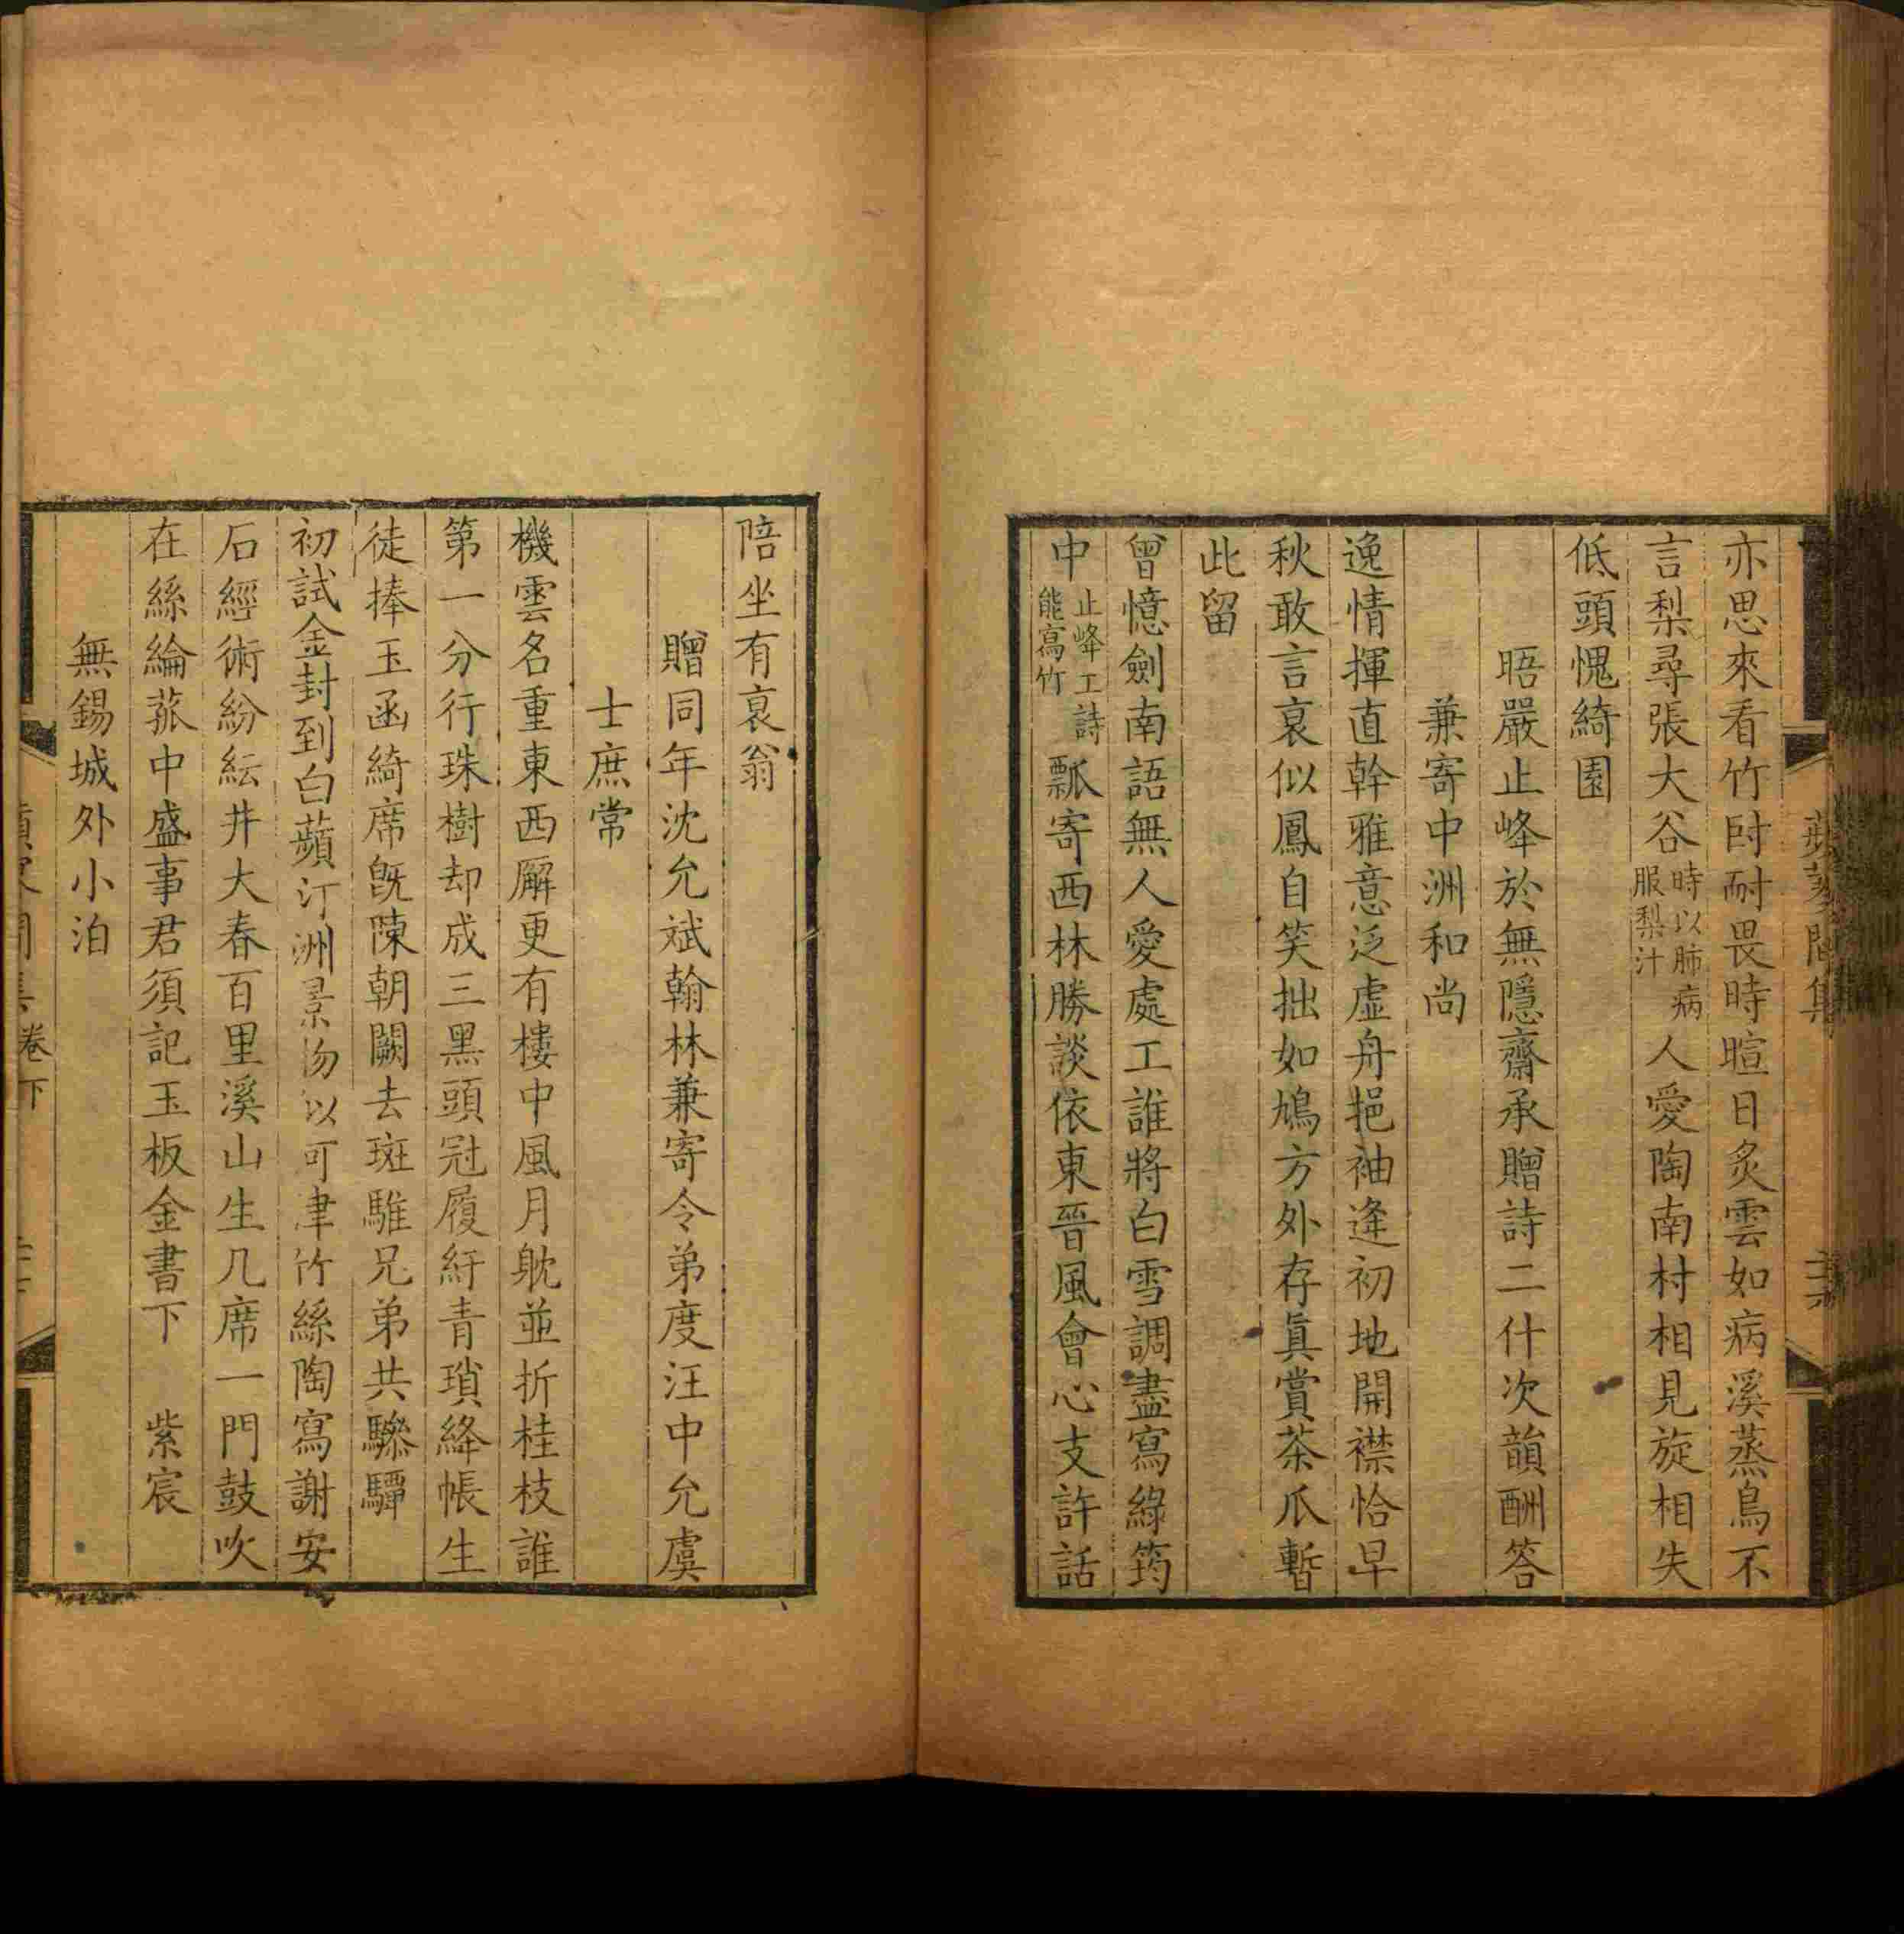 亦思來看竹时耐畏時暄日炙雲如病溪蒸鳥不
言梨尋張大谷時以肺病服梨汁人愛陶南村相見旋相失
低頭愧綺園
晤嚴止峰於無隱齋承贈詩二什次韻酬答
兼寄中洲和尚
逸情揮直幹雅意泛虛舟挹袖逢初地開襟恰早
秋敢言哀似鳳自笑拙如鳩方外存眞賞茶瓜暫
此留
曾憶劍南語無人愛處工誰將白雪調盡寫綠筠
中止峰工詩能寫竹瓢寄西林勝談依東晉風會心支許話
陪坐有哀翁
贈同年沈允斌翰林兼寄令弟度汪中允虞
士庶常
機雲名重東西廨更有樓中風月躭並折桂枝誰
第一分行珠樹却成三黑頭冠履紆青瑣絳帳生
徒捧玉函綺席旣陳朝闕去斑騅兄弟共驂驔
初試金封到白蘋汀洲景物以可津竹絲陶寫謝安
石經術紛紜井大春百里溪山生几席一門鼓吹
在絲綸蓀中盛事君須記玉板金書下 紫宸
無錫城外小泊
卷下